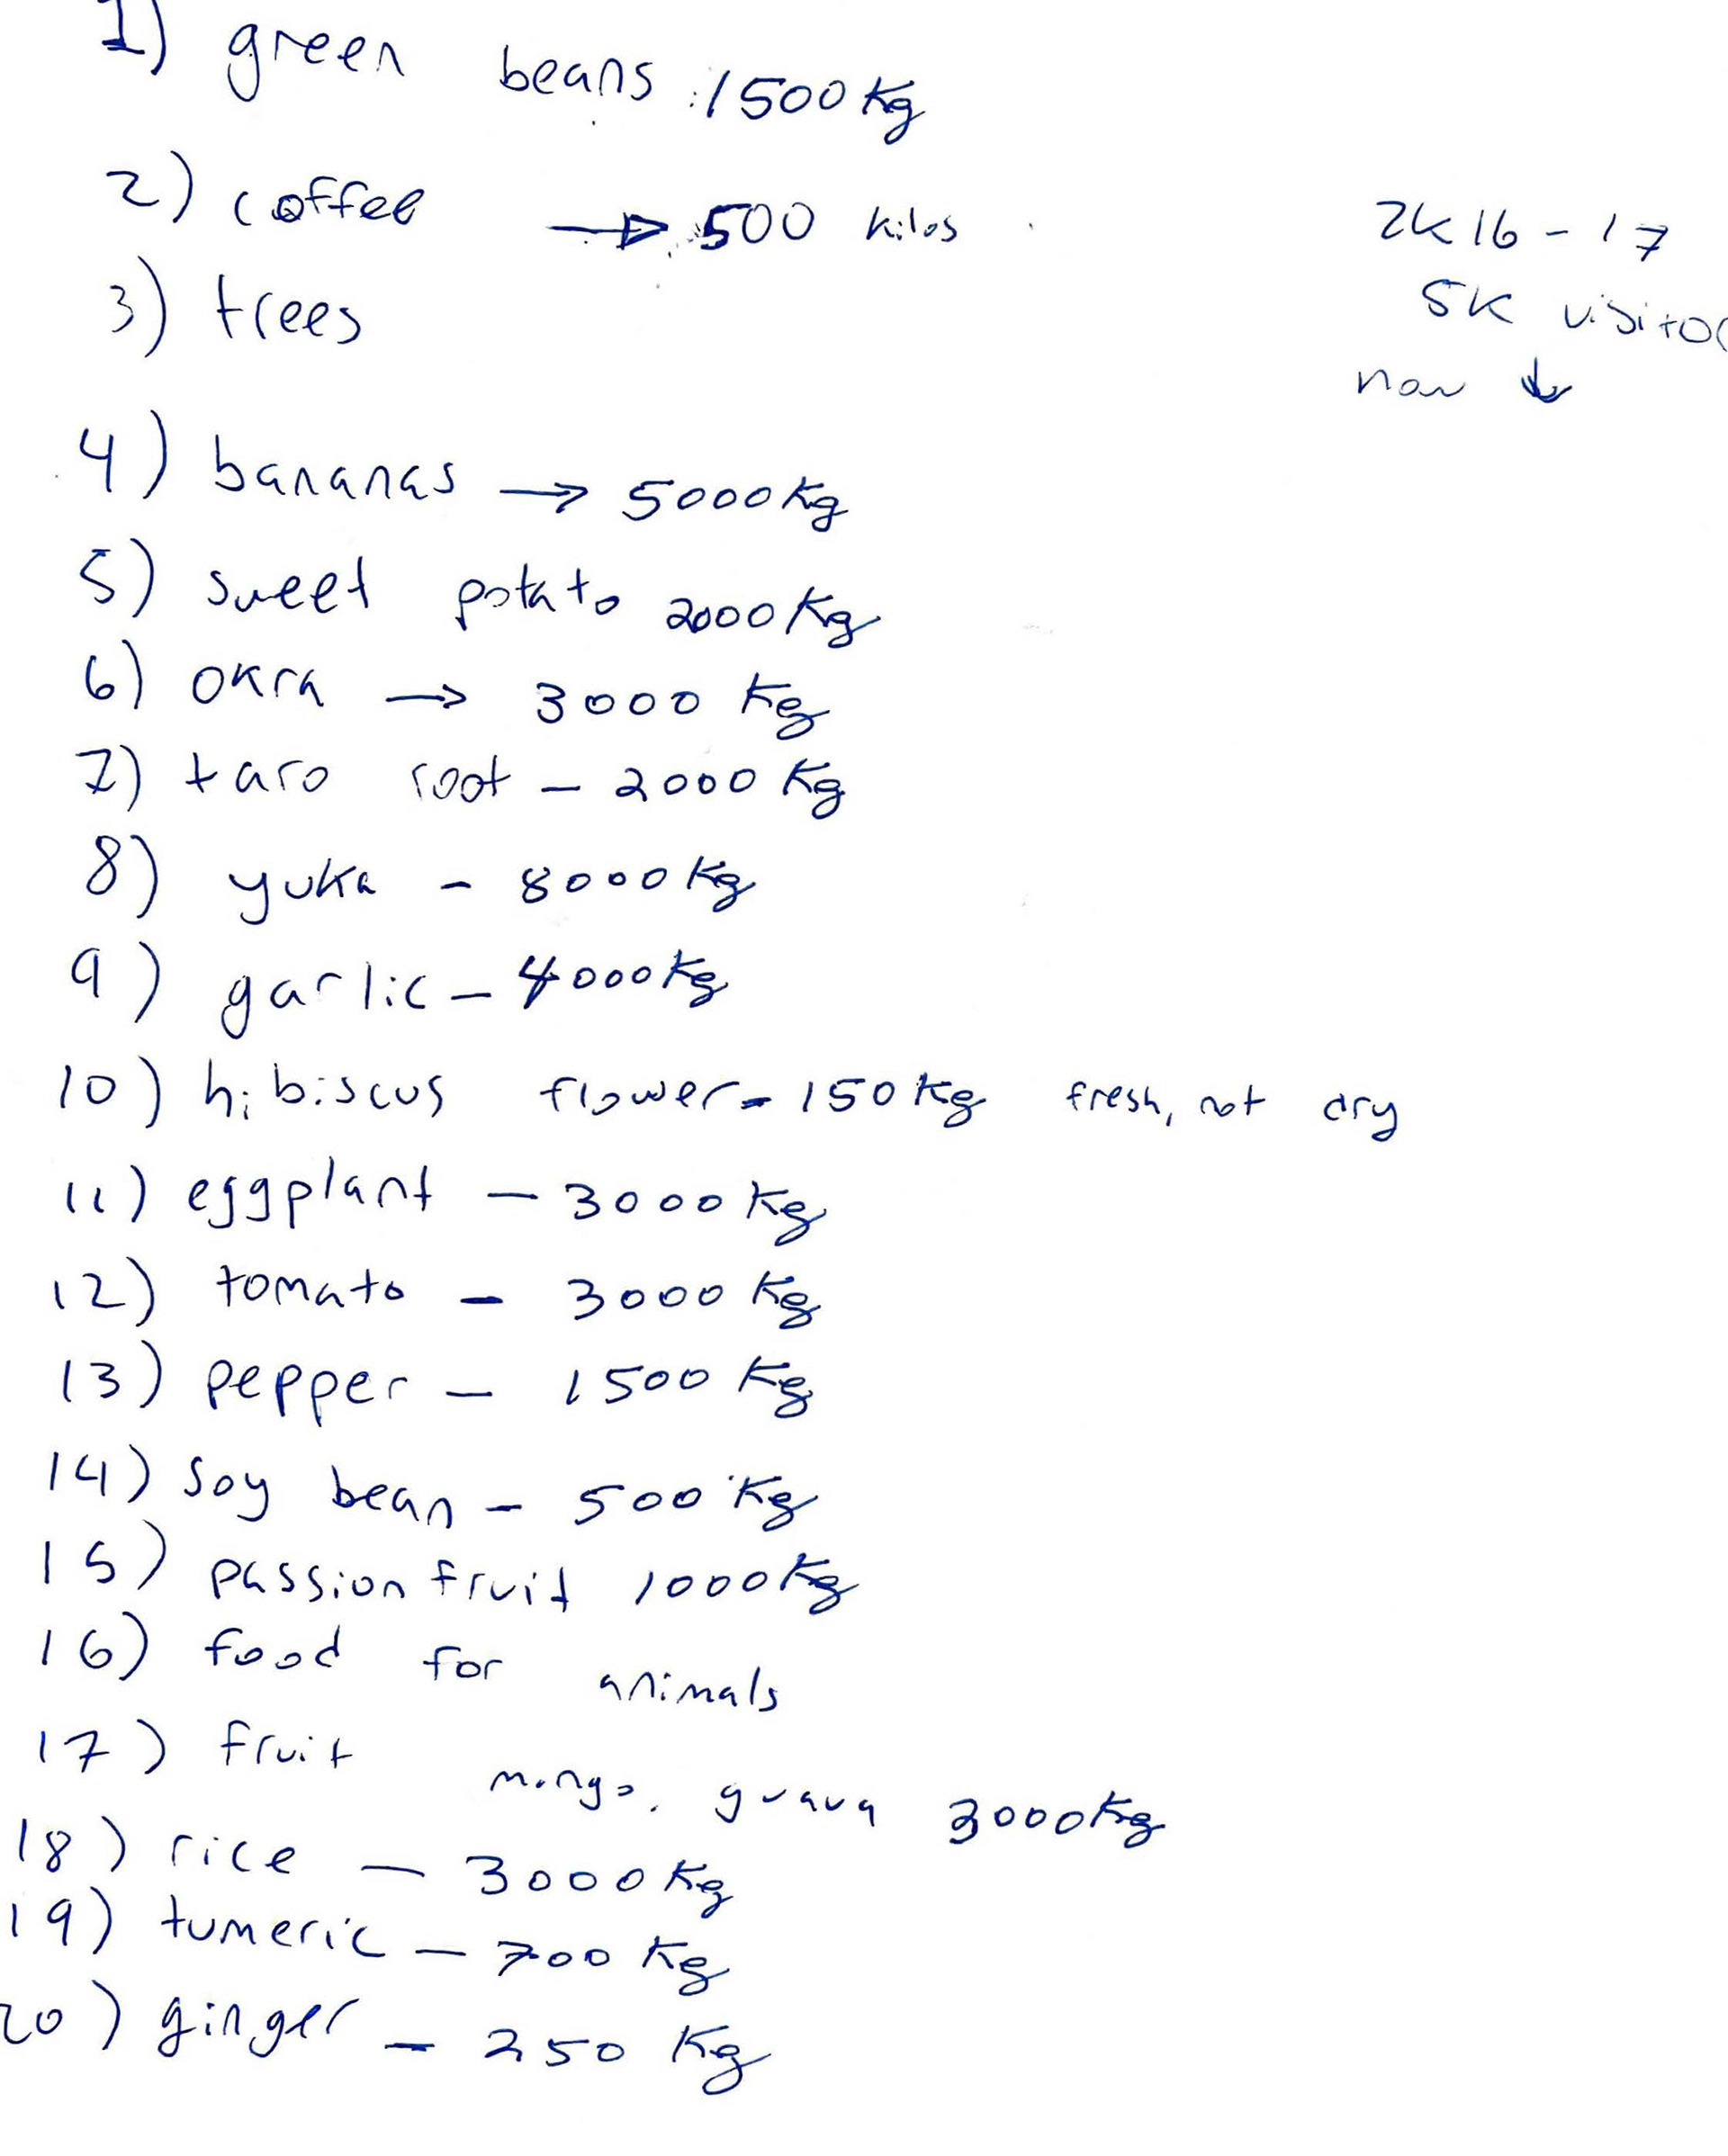 1) green beans : 1500 kg
2) coffee → 500 kilos
2k16 - 17
3) trees
5k visitor
now ↓
4) bananas → 5000 kg
5) sweet potato 2000 kg
6) okra → 3000 kg
7) taro root - 2000 kg
8) yuka - 8000 kg
9) garlic - 4000 kg
10) hibiscus flower - 150 kg fresh, not dry
11) eggplant - 3000 kg
12) tomato - 3000 kg
13) pepper - 1500 kg
14) soy bean - 500 kg
15) passion fruit 1000 kg
16) food for animals
17) fruit mango, guava 3000 kg
18) rice - 3000 kg
19) tumeric - 700 kg
20) ginger - 250 kg